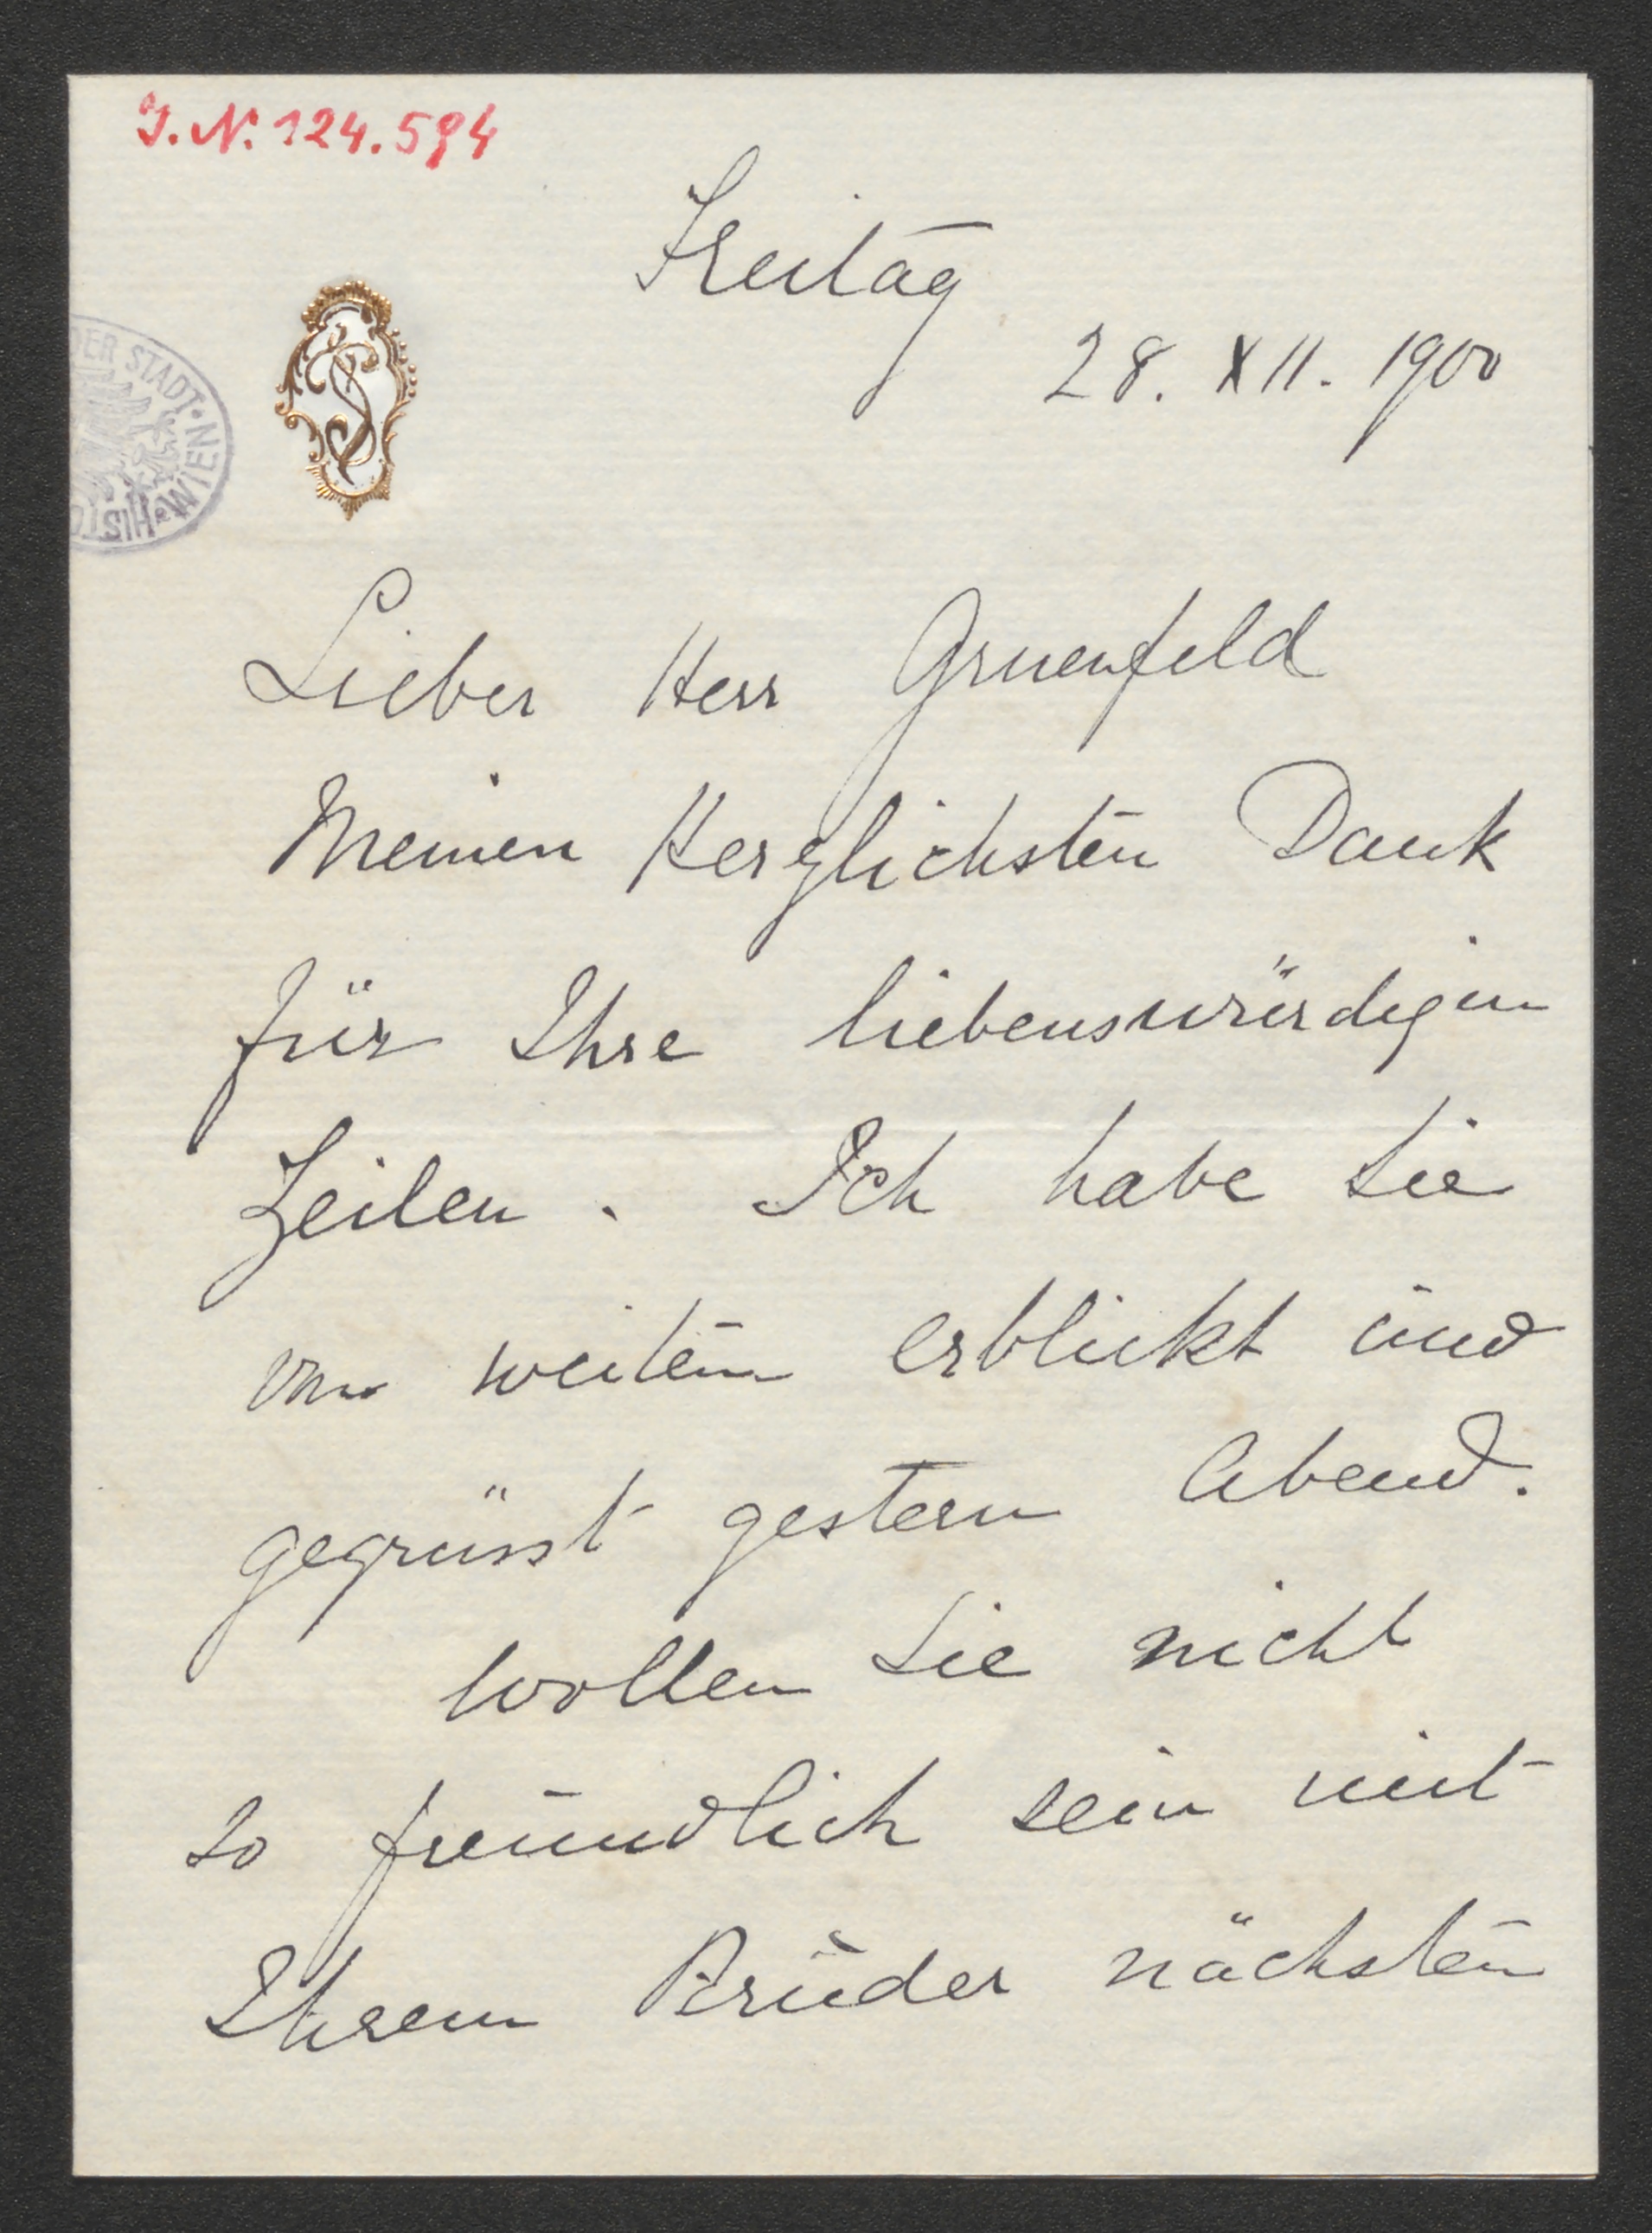 J. N. 124.594
Freitag
28. XII. 1900
DER STADT · WIEN · HISTO
Lieber Herr Gruenfeld
Meinen Herzlichsten Dank
für Ihre liebenswürdigen
Zeilen. Ich habe Sie
von weiten erblickt und
gegrüsst gestern Abend.
Wollen Sie nicht
so freundlich sein mit
Ihrem Bruder nächsten